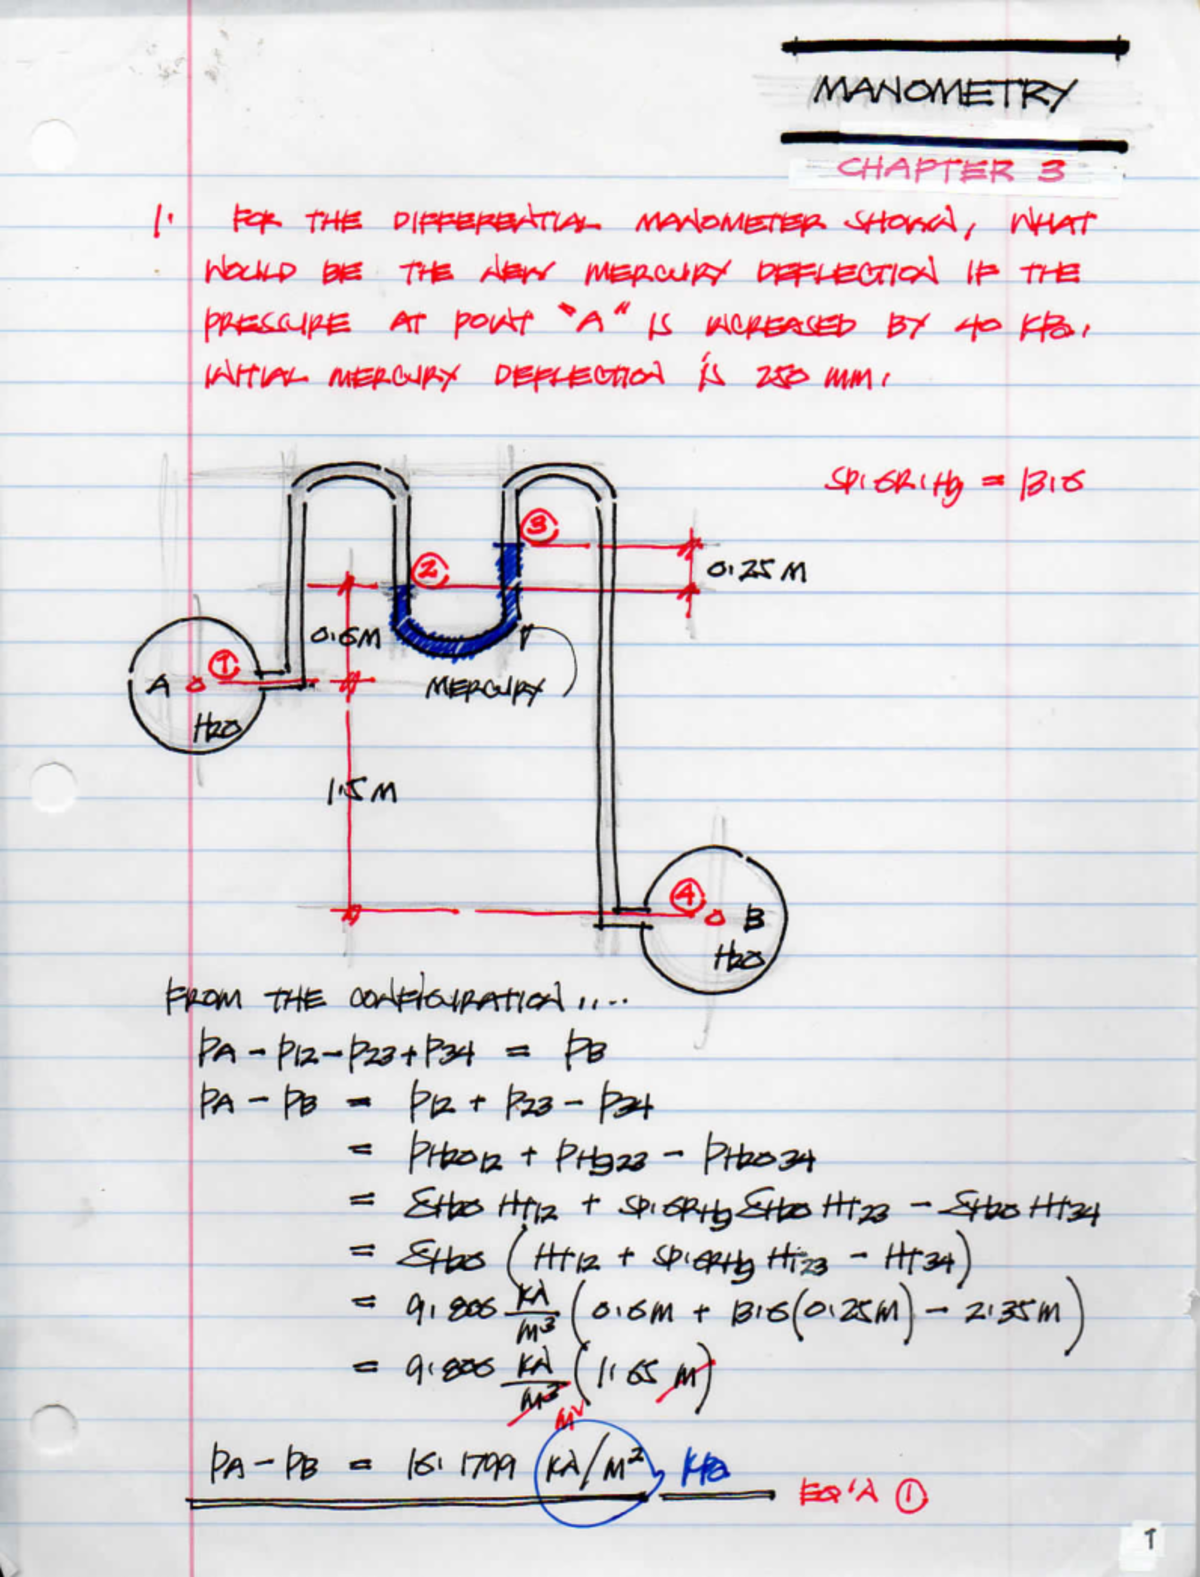 MANOMETRY
CHAPTER 3
1. FOR THE DIFFERENTIAL MANOMETER SHOWN, WHAT
WOULD BE THE NEW MERCURY DEFLECTION IF THE
PRESSURE AT POINT "A" IS INCREASED BY 40 KPa.
INITIAL MERCURY DEFLECTION IS 250 MM.
SP.GR.Hg = 13.6
3
2
0.25 M
0.6M
1
A
MERCURY
H2O
1.5M
4
B
H2O
FROM THE CONFIGURATION....
PA - P12 - P23 + P34 = PB
PA - PB = P12 + P23 - P34
= PH2O12 + PHg23 - PH2O34
= δH2O HT12 + SP.GRHg δH2O HT23 - δH2O HT34
= δH2O (HT12 + SP.GRHg HT23 - HT34)
= 9.806 KN/M3 (0.6M + 13.6(0.25M) - 2.35M)
= 9.806 KN/M3 (1.65 M)
M2
PA - PB = 16.1799 KN/M2, KPa EQ'N 1
1